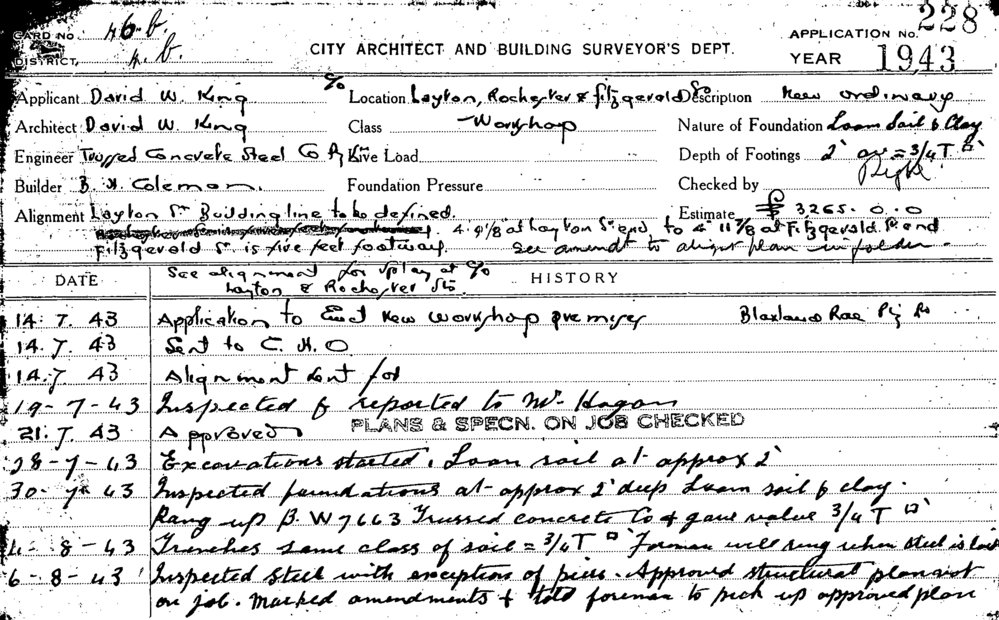 CARD NO. 46.b. APPLICATION NO. 228
DISTRICT, 4.b. CITY ARCHITECT AND BUILDING SURVEYOR'S DEPT. YEAR 1943
Applicant David W. King Location c/o Layton, Rochester & Fitzgerald Sts Description New ordinary
Architect David W King Class Workshop Nature of Foundation Loam Soil & Clay
Engineer Trussed Concrete Steel Co Live Load Depth of Footings 2' = 3/4 T □'
Builder B. H. Coleman. Foundation Pressure Checked by
Alignment Layton St Building line to be defined. Estimate £ 3265.0.0
4. 9 1/8" at Layton St end to 4' 11 7/8 at Fitzgerald St end
Fitzgerald St. is five feet footway. See amendt to alignt plan in folder.
See alignment for splay at c/o
Layton & Rochester Sts.
DATE HISTORY
14. 7. 43 Application to Erect New Workshop premises Blaxland Rae Pty
14. 7. 43 Sent to C. H. O
14. 7. 43 Alignment sent for
19-7-43 Inspected & reported to Mr Hogan
21. 7. 43 Approved PLANS & SPECN. ON JOB CHECKED
28-7-43 Excavations started. Loam soil at approx 2'
30-7-43 Inspected foundations at approx 2' deep Loam soil & clay.
Rang up B.W 7663 Trussed concrete Co & gave value 3/4 T □'
4-8-43 Trenches same class of soil = 3/4 T □' Foreman will ring when steel is laid
6-8-43 Inspected steel with exception of piers. Approved structural plan not
on job. Marked amendments & told foreman to pick up approved plan